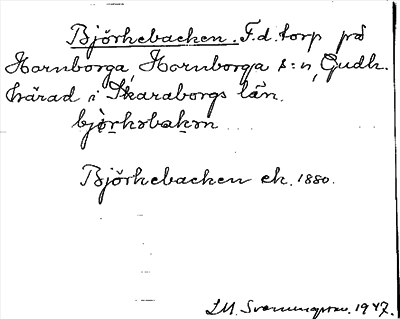 Björkebacken. F.d. torp på
Hornborga, Hornborga s:n, Gudh.
härad i Skaraborgs län.
bjòrkəbakən
Björkebacken ek. 1880.
1947.